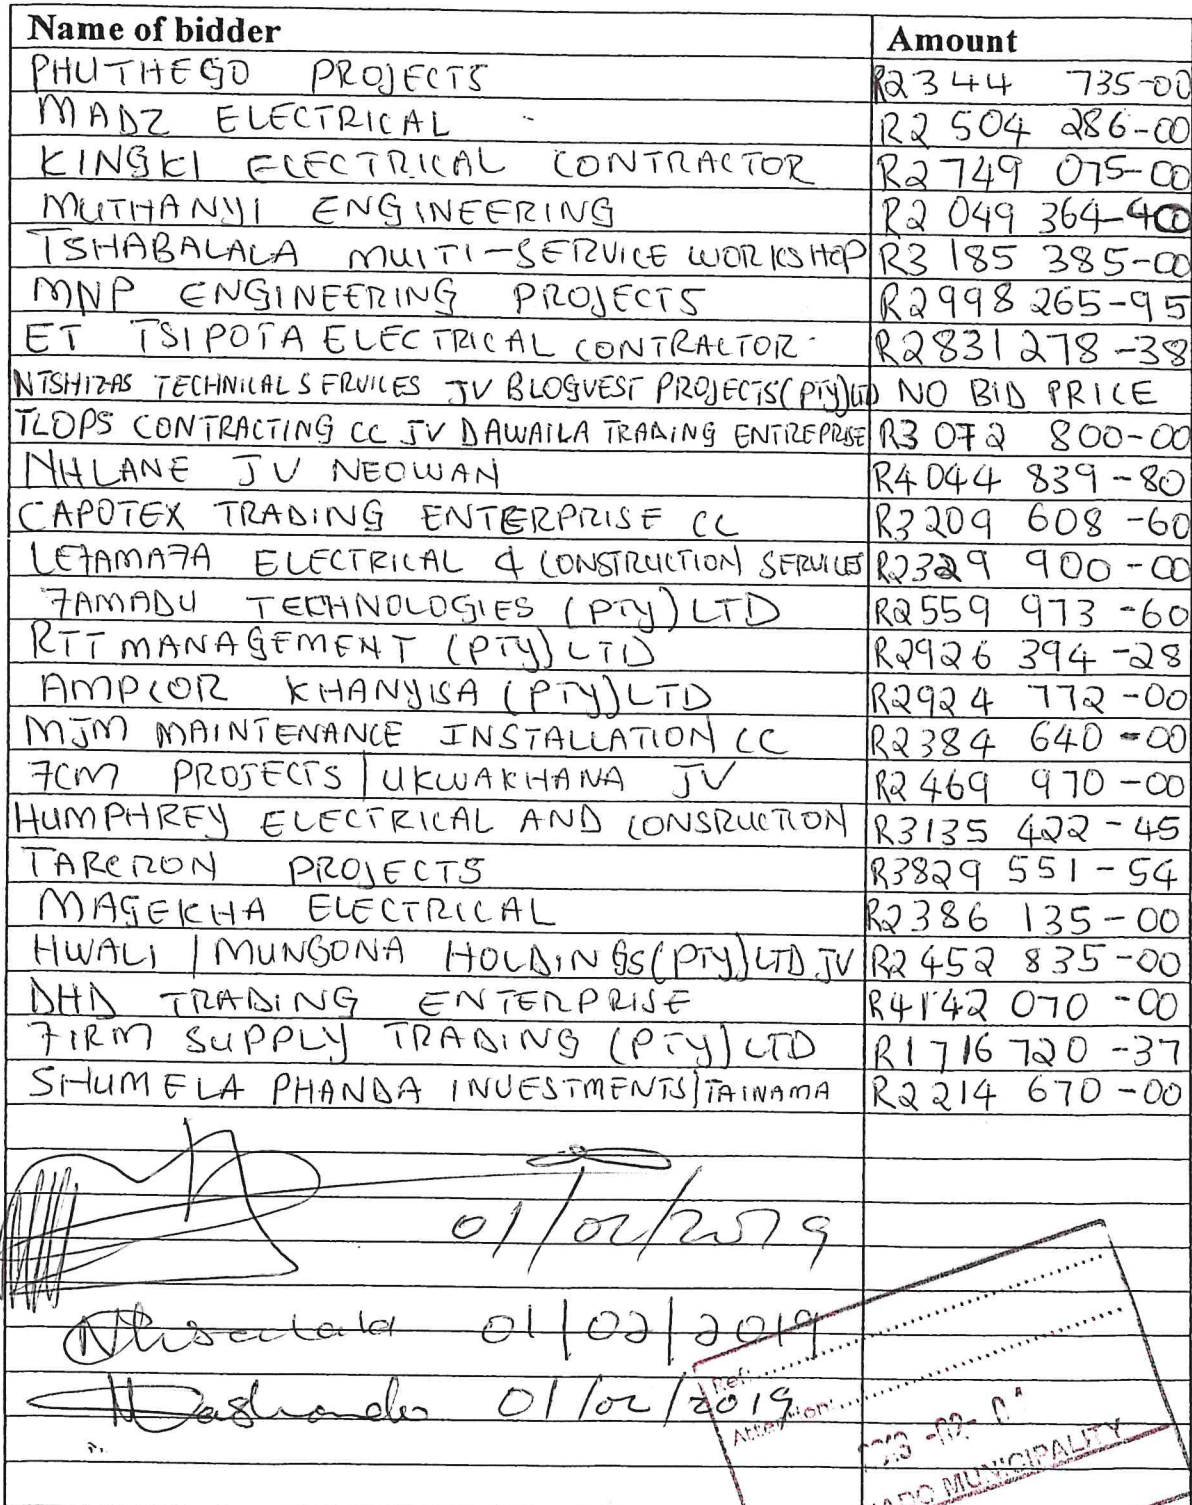 Name of bidder Amount
PHUTHEGO PROJECTS R2344 735-00
MADZ ELECTRICAL R2 504 286-00
KINGKI ELECTRICAL CONTRACTOR R2749 075-00
MUTHANYI ENGINEERING R2 049 364-40
TSHABALALA MULTI-SERVICE WORKSHOP R3 185 385-00
MNP ENGINEERING PROJECTS R2998 265-95
ET TSIPOTA ELECTRICAL CONTRACTOR R2831 278-38
NTSHIZAS TECHNICAL SERVICES JV BLOGVEST PROJECTS(PTY)LTD NO BID PRICE
TLOPS CONTRACTING CC JV DAWAILA TRADING ENTREPRISE R3 072 800-00
NHLANE JV NEOWAN R4044 839-80
CAPOTEX TRADING ENTERPRISE CC R3209 608-60
LEFAMAFA ELECTRICAL & CONSTRUCTION SERVICES R2329 900-00
FAMADU TECHNOLOGIES (PTY) LTD R2559 973-60
RTT MANAGEMENT (PTY) LTD R2926 394-28
AMPCOR KHANYISA (PTY) LTD R2924 772-00
MJM MAINTENANCE INSTALLATION CC R2384 640-00
7CM PROJECTS | UKWAKHANA JV R2469 970-00
HUMPHREY ELECTRICAL AND CONSRUCTION R3135 422-45
TARCRON PROJECTS R3829 551-54
MAGEKHA ELECTRICAL R2386 135-00
HWALI | MUNGONA HOLDINGS(PTY) LTD JV R2452 835-00
DHD TRADING ENTERPRISE R4142 070-00
FIRM SUPPLY TRADING (PTY) LTD R1716 720-37
SHUMELA PHANDA INVESTMENTS|TAINAMA R2214 670-00
01/02/2019
01/02/2019
01/02/2019
Ref:
Attention:
MUNICIPALITY